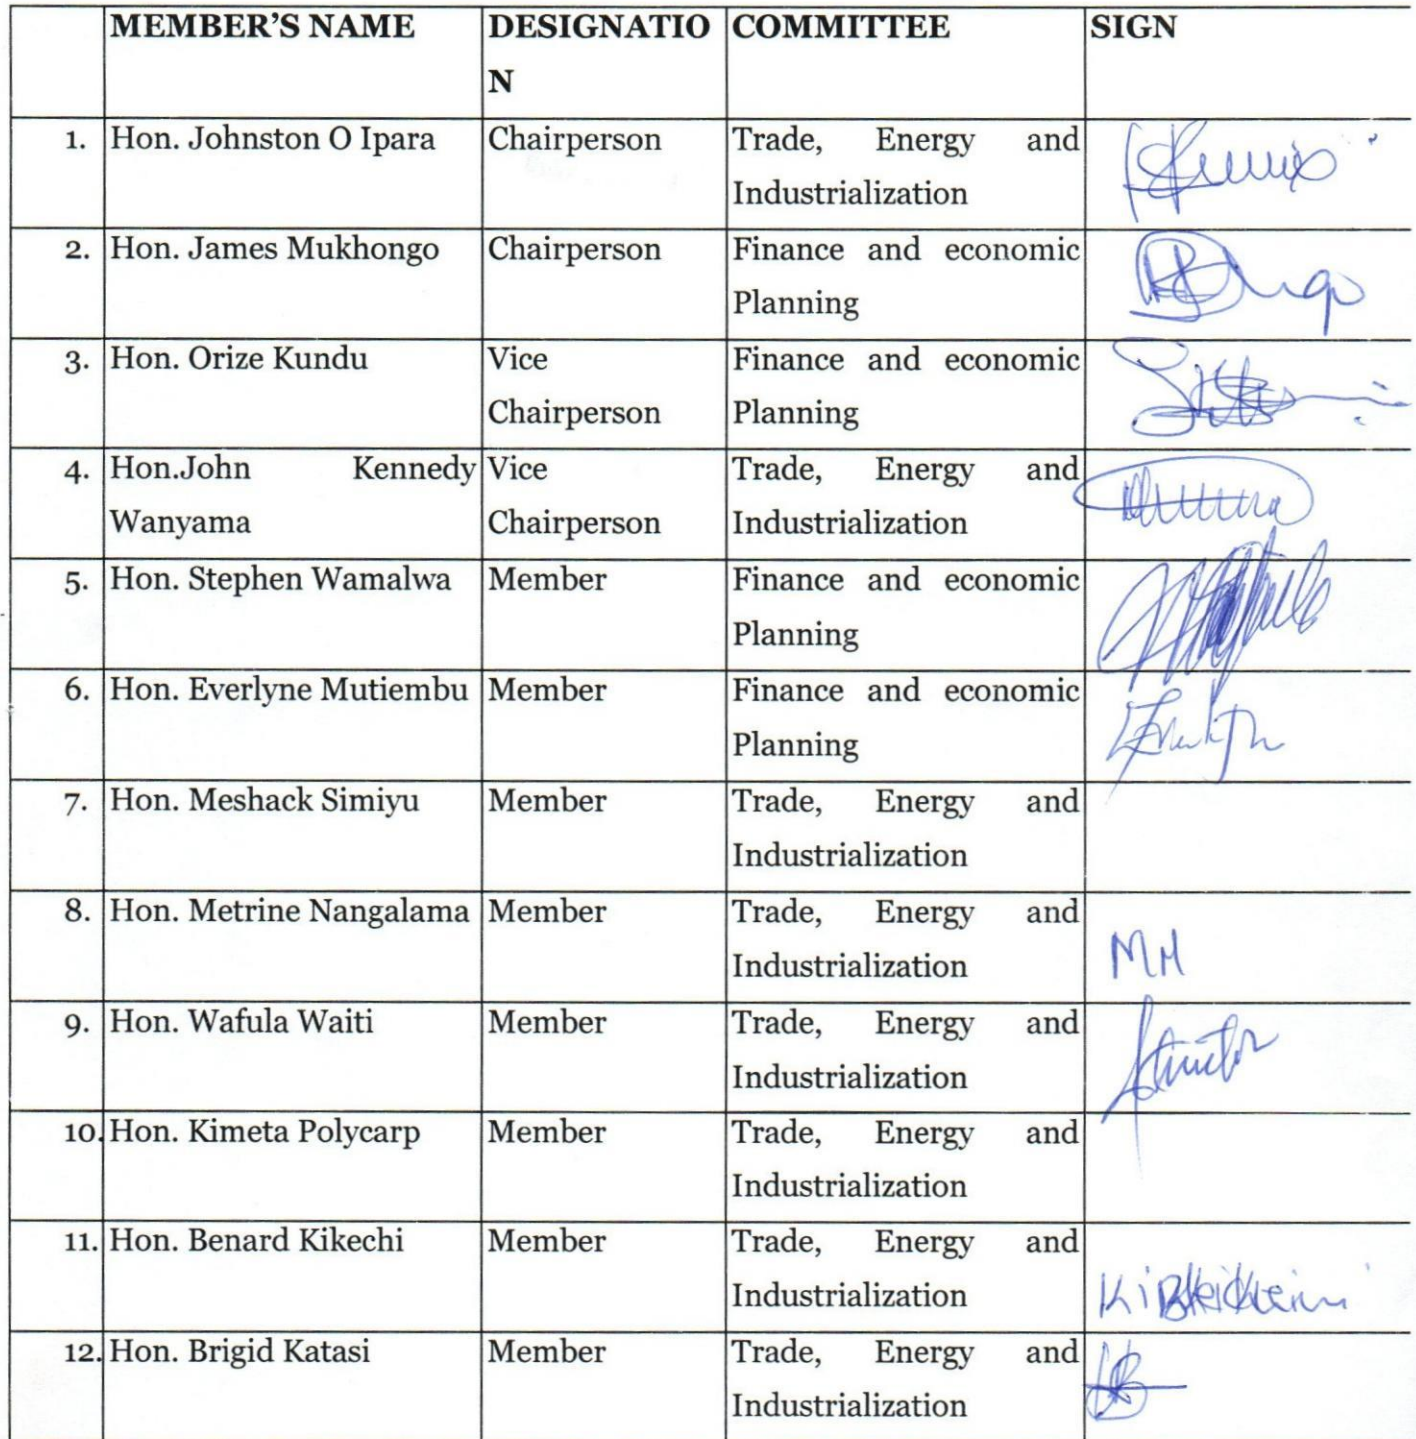 MEMBER'S NAME DESIGNATIO COMMITTEE SIGN
N
1. Hon. Johnston O Ipara Chairperson Trade, Energy and
Industrialization
2. Hon. James Mukhongo Chairperson Finance and economic
Planning
3. Hon. Orize Kundu Vice Finance and economic
Chairperson Planning
4. Hon.John Kennedy Vice Trade, Energy and
Wanyama Chairperson Industrialization
5. Hon. Stephen Wamalwa Member Finance and economic
Planning
6. Hon. Everlyne Mutiembu Member Finance and economic
Planning
7. Hon. Meshack Simiyu Member Trade, Energy and
Industrialization
8. Hon. Metrine Nangalama Member Trade, Energy and
Industrialization MM
9. Hon. Wafula Waiti Member Trade, Energy and
Industrialization
10. Hon. Kimeta Polycarp Member Trade, Energy and
Industrialization
11. Hon. Benard Kikechi Member Trade, Energy and
Industrialization
12. Hon. Brigid Katasi Member Trade, Energy and
Industrialization